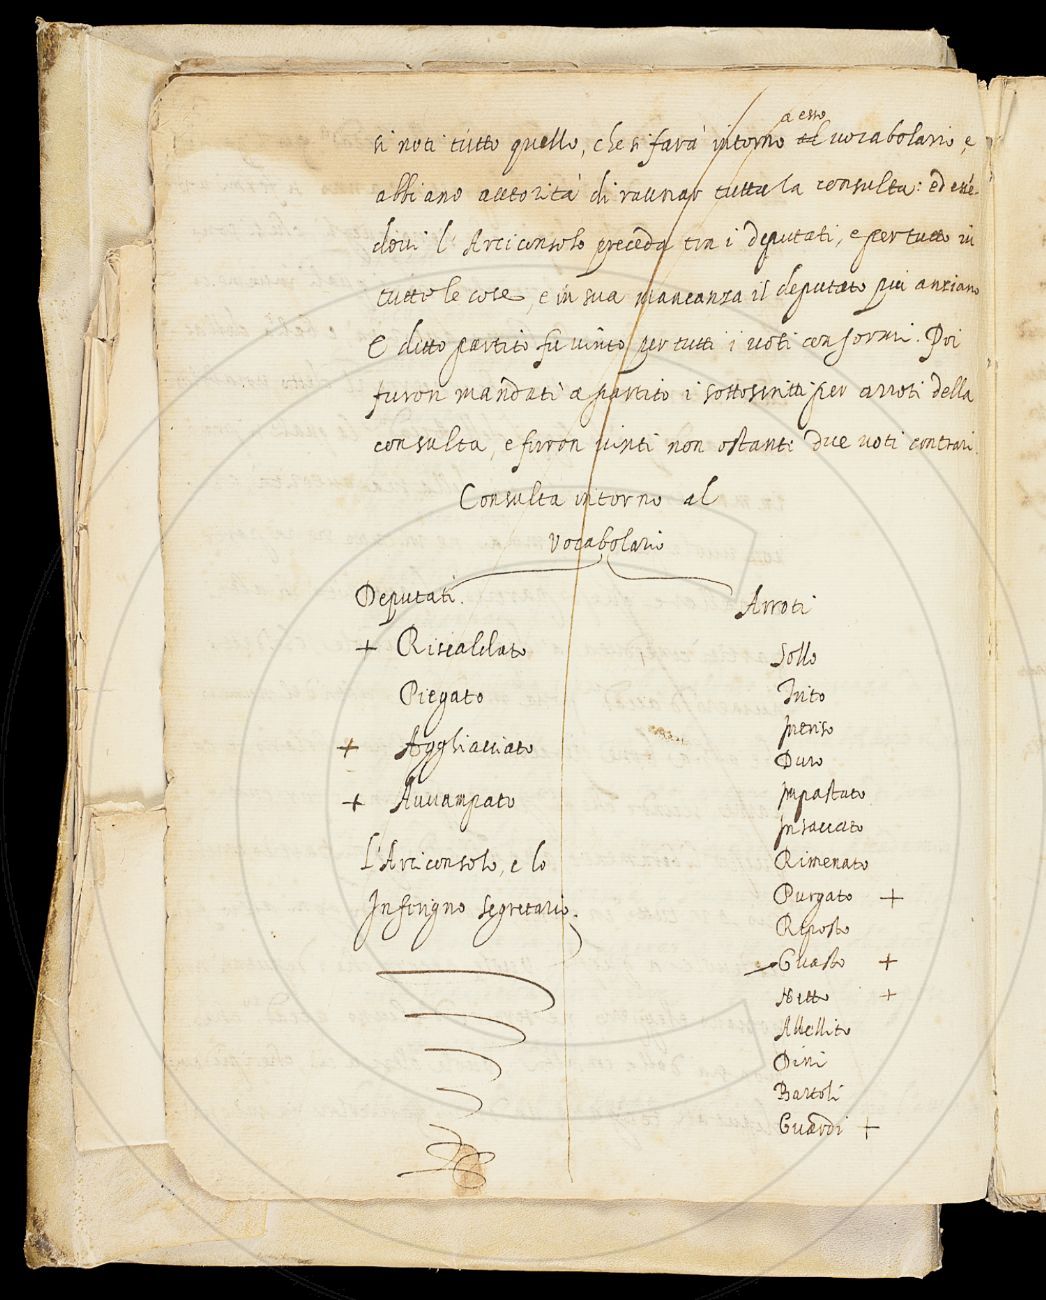 a esso
si noti tutto quello, che si farà intorno al vocabolario, e
abbiano autorità di raunar tutta la consulta: ed essē-
dovi l'Arciconsolo preceda tra i deputati, e per tutto in
tutte le cose, e in sua mancanza il deputato più anziano
E detto partito fu vinto per tutti i voti conformi. Poi
furon mandati a partito i sottoscritti per arroti della
consulta, e furon vinti non ostanti due voti contrari.
Consulta intorno al
vocabolario
Deputati.
+ Riscaldato
Piegato
+ Agghiacciato
+ Avvampato
L'Arciconsolo, e lo
Inferigno segretario.
Arroti
Sollo
Trito
Intriso
Duro
Impastato
Insaccato
Rimenato
Purgato +
Riposto
Guasto +
Netto +
Abbellito
Dini
Bartoli
Guardi +